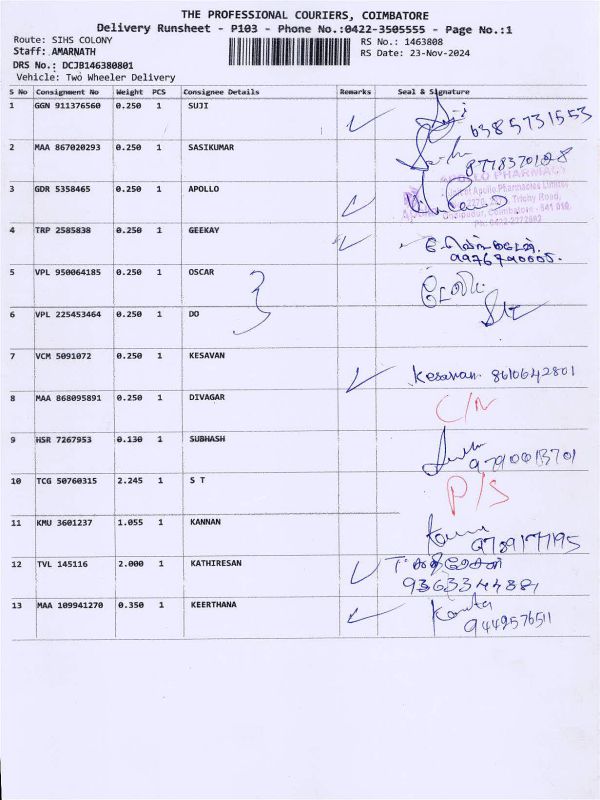 THE PROFESSIONAL COURIERS, COIMBATORE
Delivery Runsheet - P103 - Phone No.:0422-3505555 - Page No.:1
Route: SIHS COLONY RS No.: 1463808
Staff: AMARNATH RS Date: 23-Nov-2024
DRS No.: DCJB146380801
Vehicle: Two Wheeler Delivery
S No Consignment No Weight PCS Consignee Details Remarks Seal & Signature
1 GGN 911376560 0.250 1 SUJI
6385731553
2 MAA 867020293 0.250 1 SASIKUMAR
3 GDR 5358465 0.250 1 APOLLO
APOLLO PHARMACY
Unit of Apollo Pharmacies Limited
Trichy Road
Coimbatore - 641
4 TRP 2585838 0.250 1 GEEKAY
9976790005.
5 VPL 950064185 0.250 1 OSCAR
6 VPL 225453464 0.250 1 DO
7 VCM 5091072 0.250 1 KESAVAN
Kesavan. 8610642801
8 MAA 868095891 0.250 1 DIVAGAR
C/N
9 HSR 7267953 0.130 1 SUBHASH
10 TCG 50760315 2.245 1 S T
P/S
11 KMU 3601237 1.055 1 KANNAN
9789177195
12 TVL 145116 2.000 1 KATHIRESAN
9363344381
13 MAA 109941270 0.350 1 KEERTHANA
9449576511